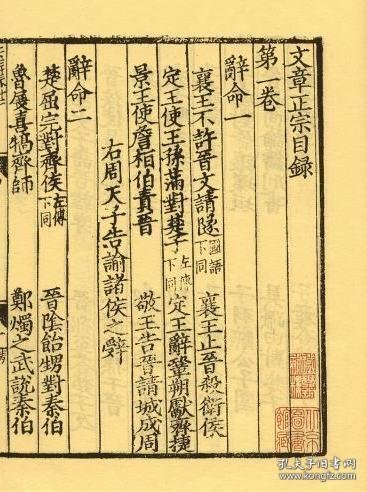 文章正宗目録
第一卷
辭命一
襄王不許晉文請隧 國語下同 襄王止晉殺衛侯
定王使王孫滿對楚子 左傳下同 定王辭鞏朔獻齊捷
景王使詹桓伯責晉 敬王告晉請城成周
右周天子告諭諸侯之辭
辭命二
楚屈完對齊侯 左傳下同 晉陰飴甥對秦伯
魯展喜犒齊師 鄭燭之武説秦伯
孔夫子旧书网
www.kongfz.com